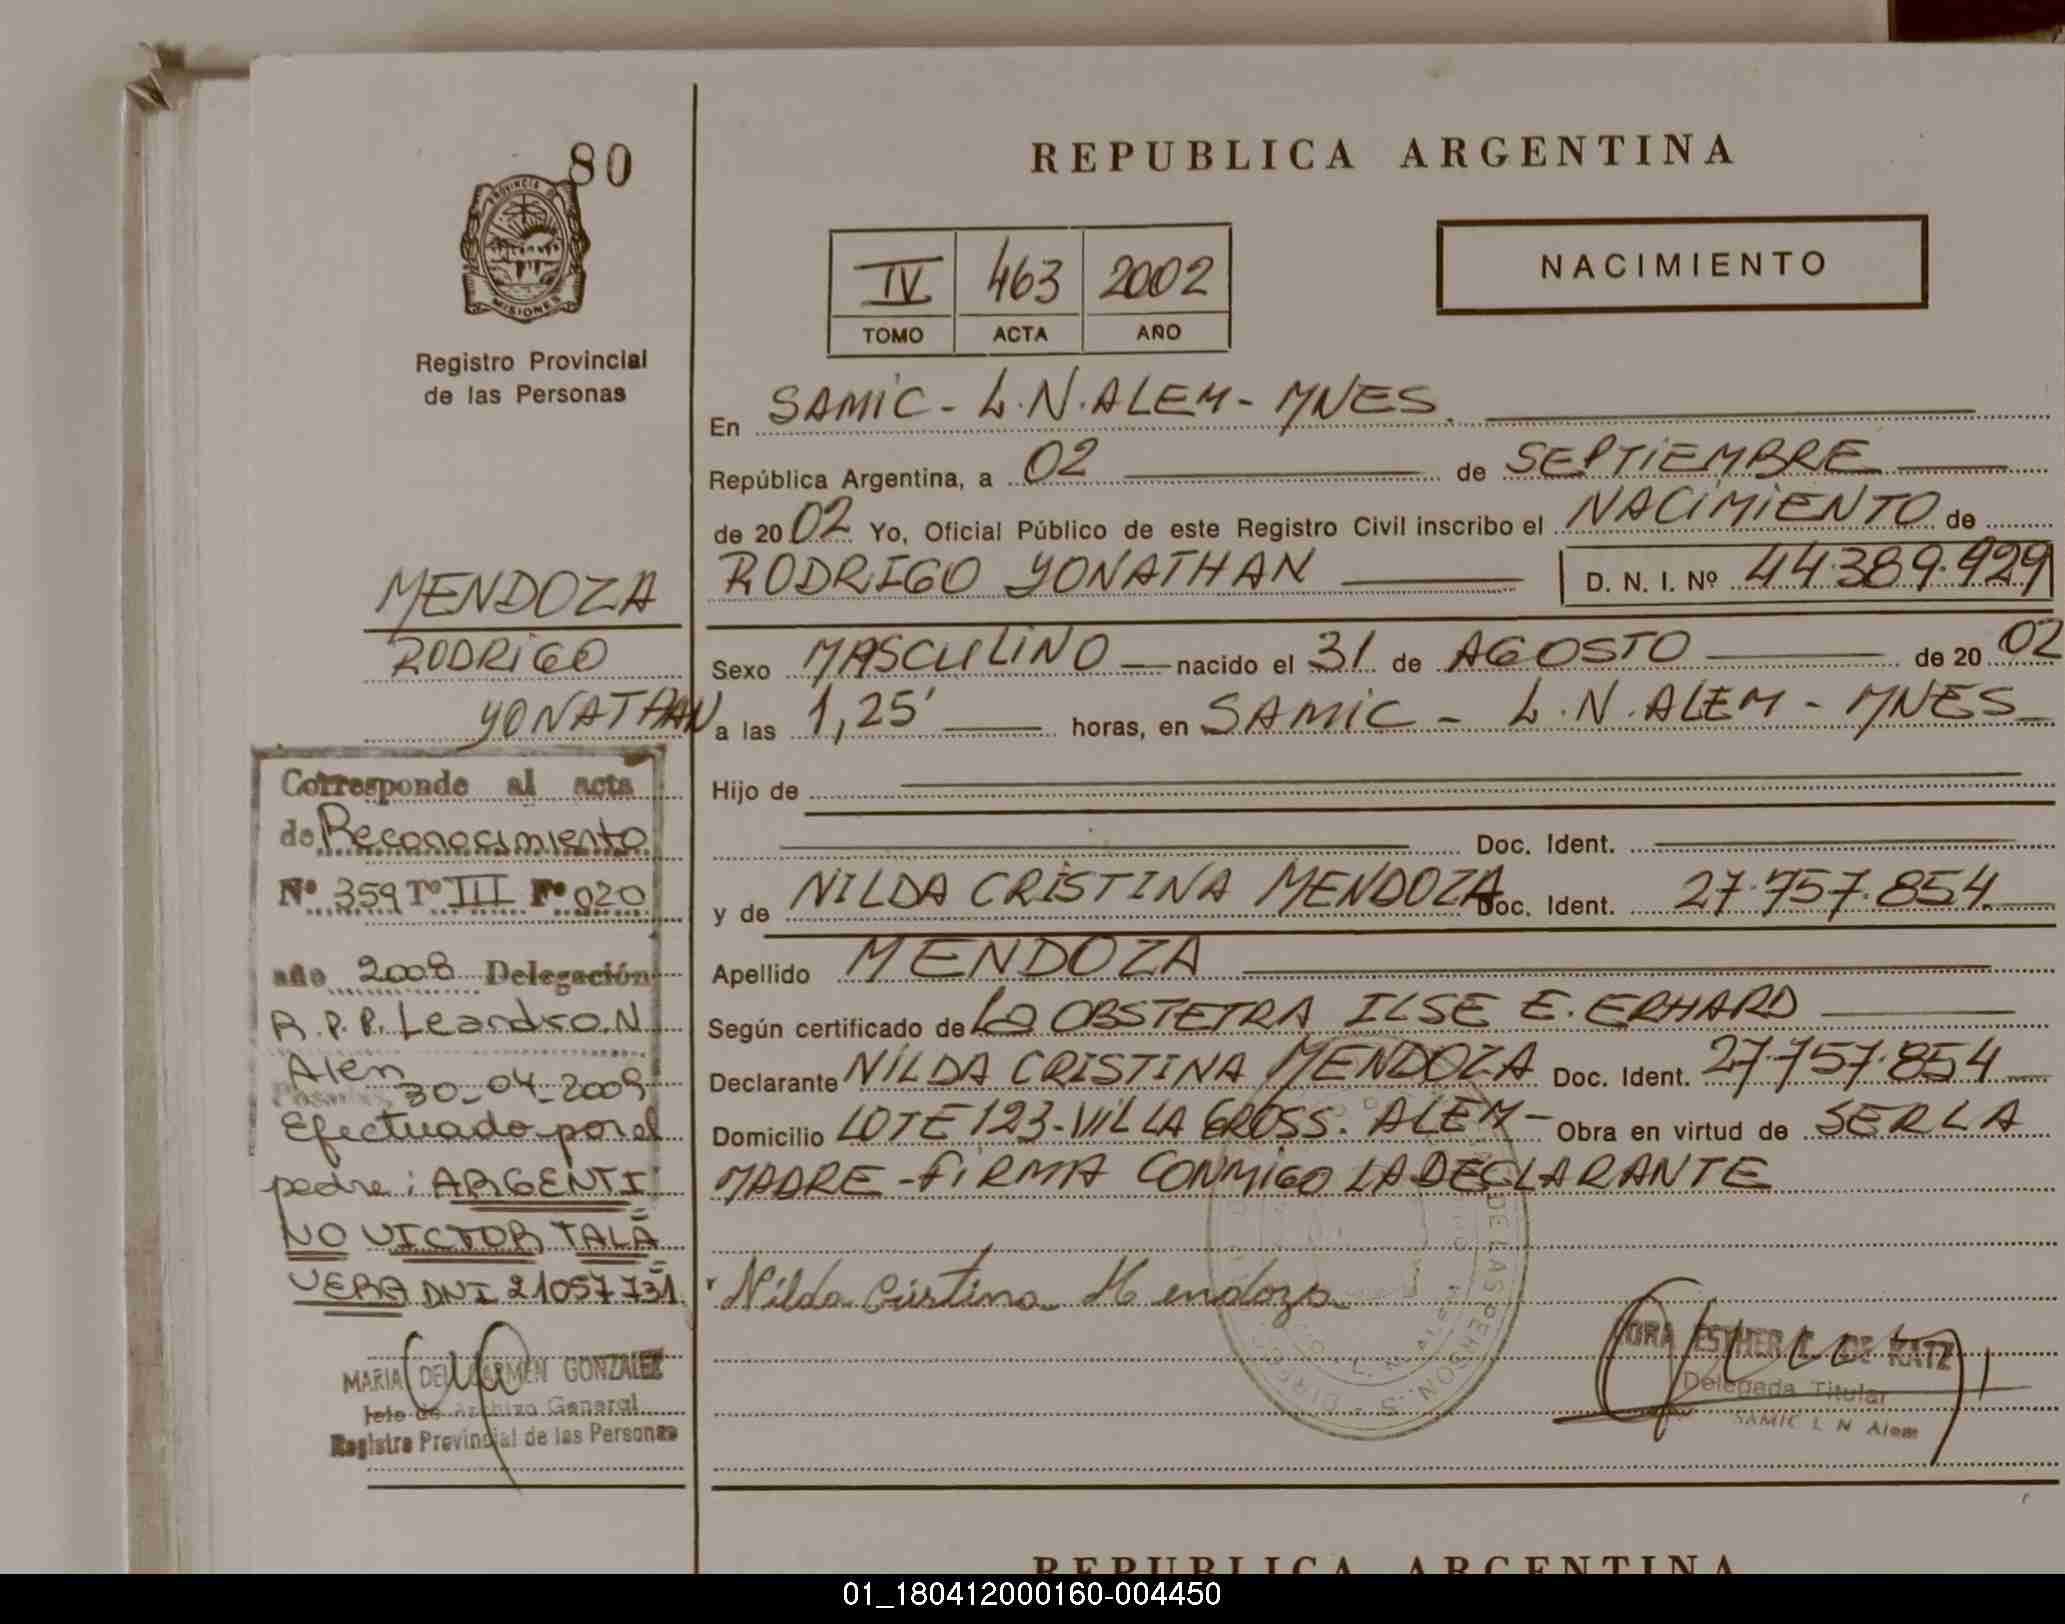 80
PROVINCIA DE
MISIONES
Registro Provincial
de las Personas
REPUBLICA ARGENTINA
IV 463 2002
TOMO ACTA AÑO
NACIMIENTO
En SAMIC - L.N.ALEM - MNES.
República Argentina, a 02 de SEPTIEMBRE
de 2002 Yo, Oficial Público de este Registro Civil inscribo el NACIMIENTO de
RODRIGO YONATHAN D. N. I. Nº 44.389.929
Sexo MASCULINO nacido el 31 de AGOSTO de 20 02
a las 1,25' horas, en SAMIC - L.N.ALEM - MNES
Hijo de
Doc. Ident.
y de NILDA CRISTINA MENDOZA Doc. Ident. 27.757.854
Apellido MENDOZA
Según certificado de La OBSTETRA ILSE E. ERHARD
Declarante NILDA CRISTINA MENDOZA Doc. Ident. 27.757.854
Domicilio LOTE 123-VILLA GROSS. ALEM - Obra en virtud de SER LA
MADRE - FIRMA CONMIGO LA DECLARANTE
Nilda Cristina Mendoza
DRA ESTHER C. DE KATZ
Delegada Titular
SAMIC L N Alem
MENDOZA
RODRIGO
YONATHAN
Corresponde al acta
de Reconocimiento
Nº 359 Tº III Fº 020
año 2008 Delegación
R.P.P. Leandro.N
Alen
Posadas, 30-04-2009
Efectuado por el
padre: ARGENTI
NO VICTOR TALA
VERA DNI 21057731
MARIA DEL CARMEN GONZALEZ
Jefe de Archivo General
Registro Provincial de las Personas
REPUBLICA ARGENTINA
01_180412000160-004450